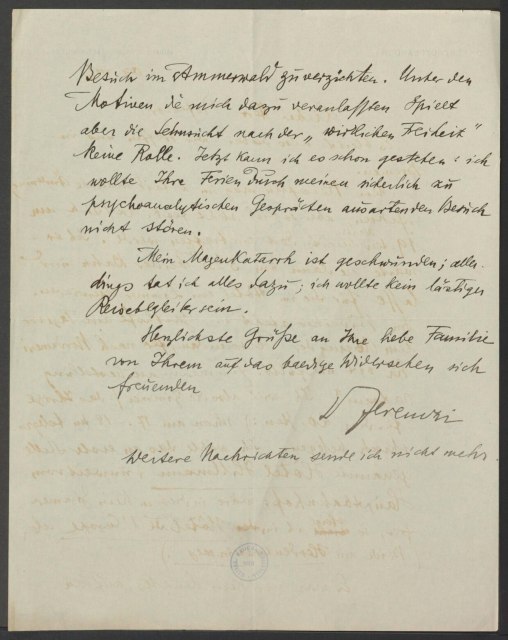 Besuch im Ammerwald zu verzichten. Unter den
Motiven die mich dazu veranlassten spielt
aber die Sehnsucht nach der „wirklichen Freiheit“
keine Rolle. Jetzt kann ich es schon gestehen: ich
wollte Ihre Ferien durch meinen sicherlich zu
psychoanalytischen Gesprächen ausartenden Besuch
nicht stören.
Mein Magenkatarrh ist geschwunden; aller-
dings tat ich alles dazu; ich wollte kein lästiger
Reisebegleiter sein.
Herzlichste Grüße an Ihre liebe Familie
von Ihrem auf das baldige Wiedersehen sich
freuenden
Dr Ferenczi
Weitere Nachrichten sende ich nicht mehr.